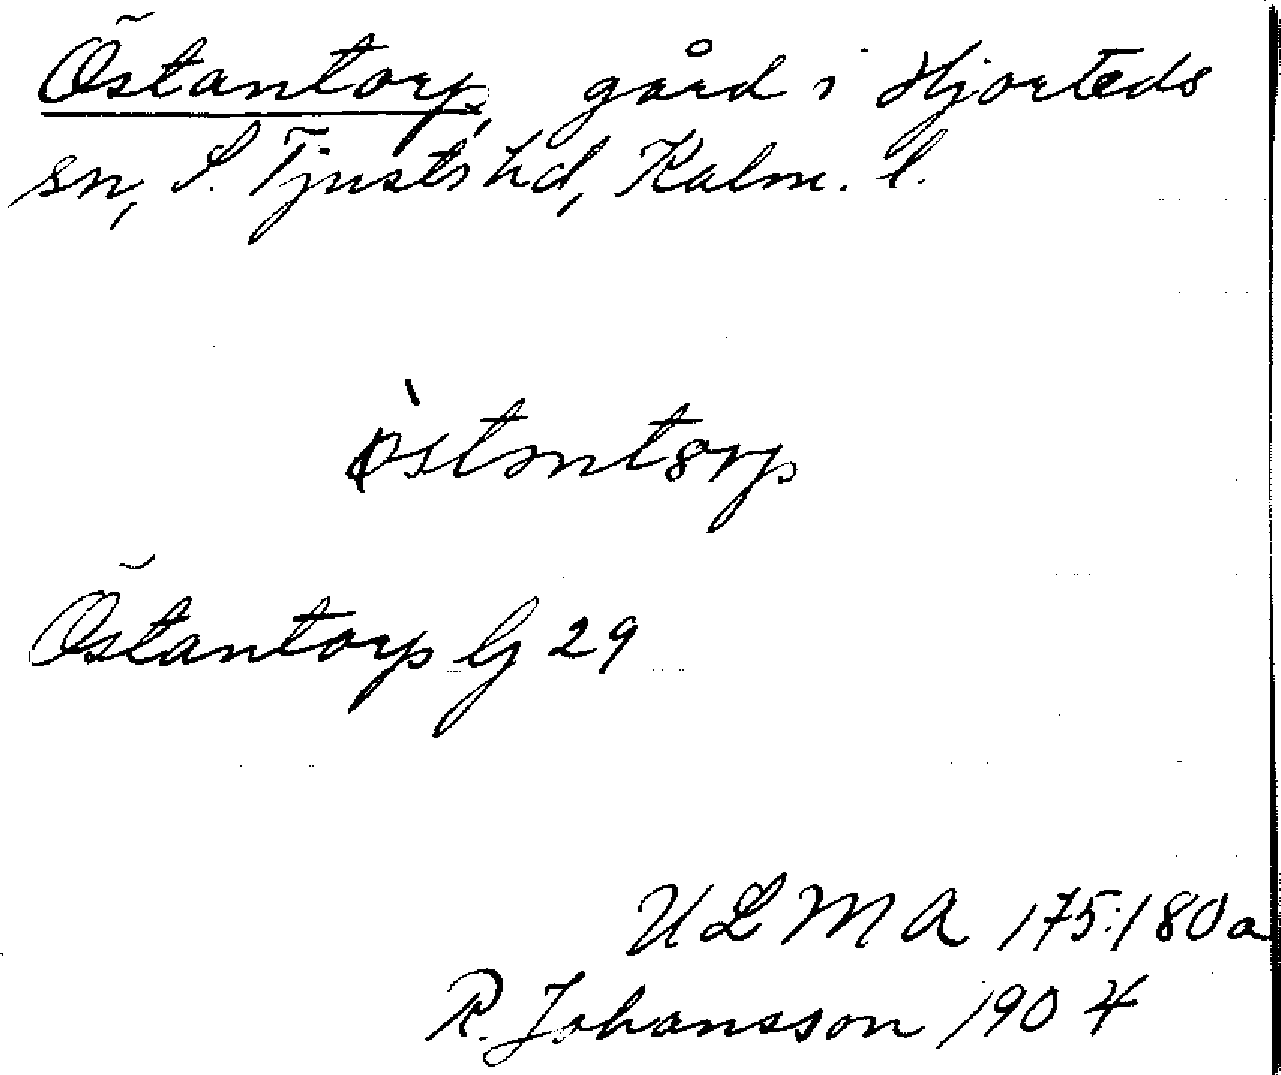 Östantorp, gård i Hjorteds
sn, S. Tjusts hd, Kalm. l.
Östantorp G 29
ULMA 175:180a
R. Johansson 1904